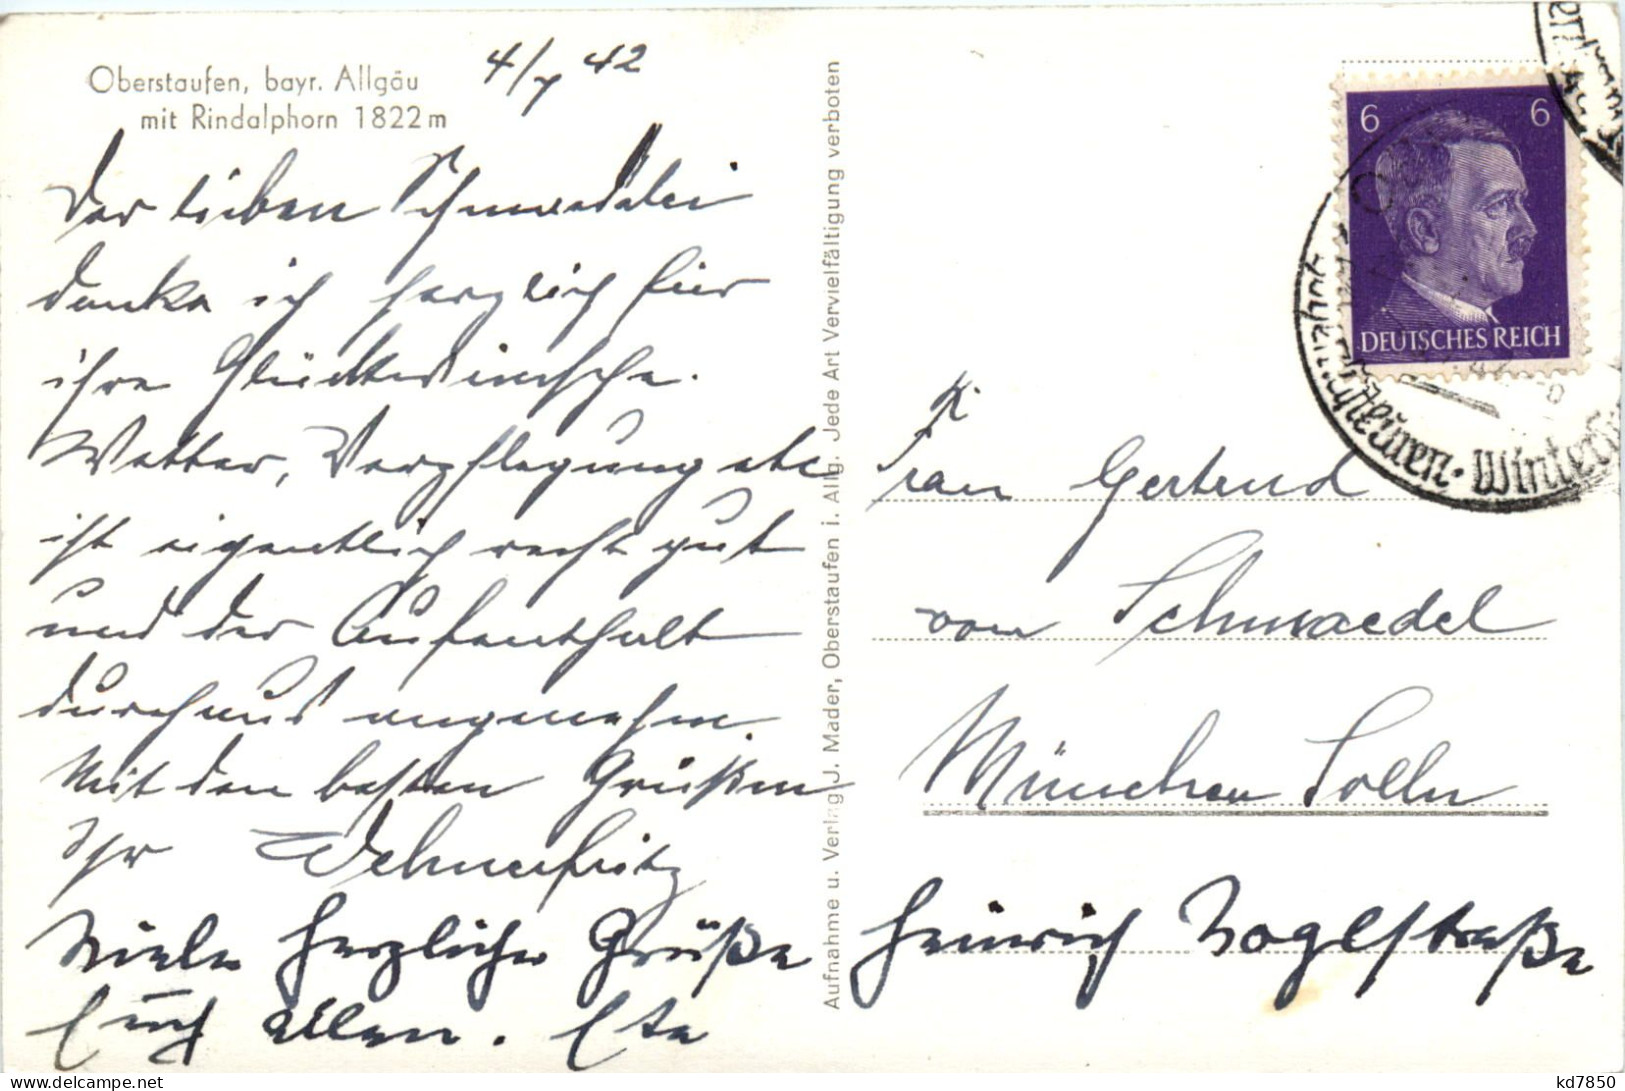 Oberstaufen, bayr. Allgäu
mit Rindalphorn 1822 m
4/7 42
Der lieben Schwaedelei
danke ich herzlich für
ihre Glückwünsche.
Wetter, Verpflegung etc
ist eigentlich recht gut
und der Aufenthalt
durchaus angenehm.
Mit den besten Grüßen
Ihr
Viele herzliche Grüße
Euch allen.
Aufnahme u. Verlag J. Mader, Oberstaufen i. Allg. Jede Art Vervielfältigung verboten
6 6
DEUTSCHES REICH
Frau Gertrud
von Schwaedel
München Solln
Heinrich Voglstraße
kd7850